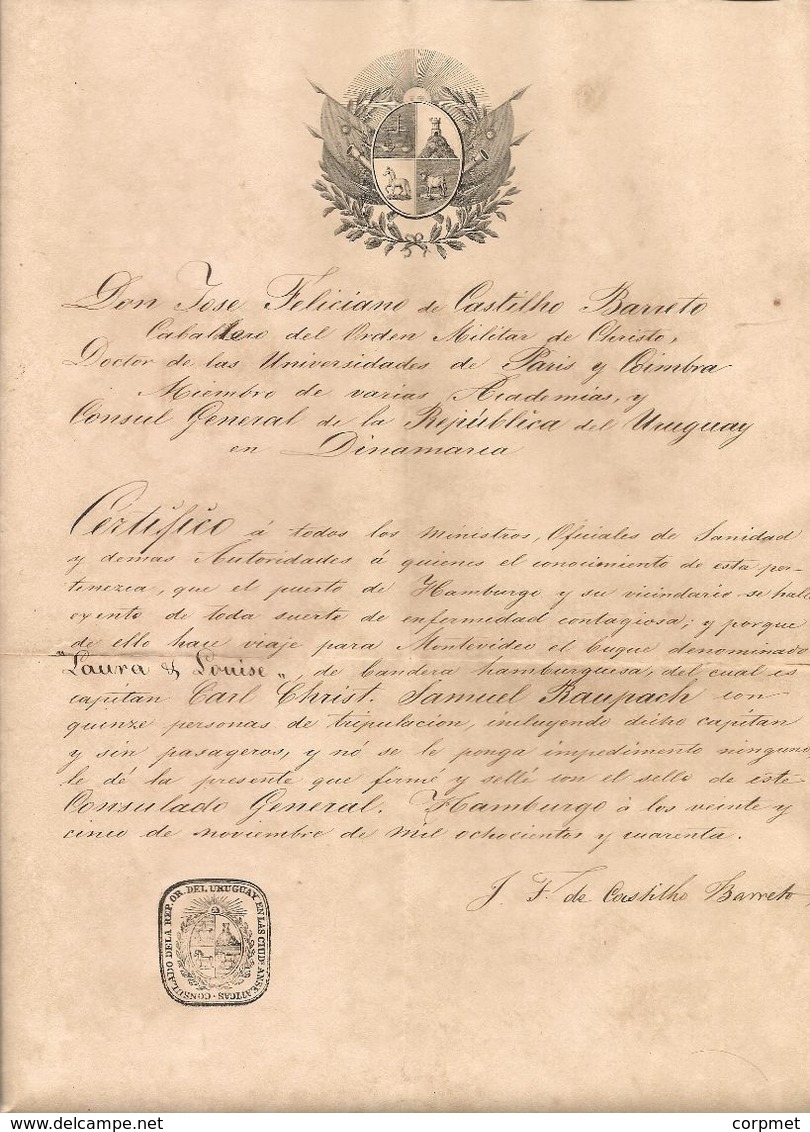 Don Jose Feliciano de Castilho Barreto
Caballero del Orden Militar de Christo,
Doctor de las Universidades de Paris y Coimbra
Miembro de varias Academias, y
Consul General de la República del Uruguay
en Dinamarca
Certifico á todos los Ministros, Oficiales de Sanidad
y demas Autoridades á quienes el conocimiento de esta per-
tenezca, que el puerto de Hamburgo y su vicindario se halla
exento de toda suerte de enfermedad contagiosa; y porque
de ello hace viaje para Montevideo el buque denominado
"Laura & Louise„ de bandera hamburguesa, del cual es
capitan Carl Christ. Samuel Raupach con
quinze personas de tripulacion, incluyendo dicho capitan
y sin pasageros, y nó se le ponga impedimento ninguno,
le dé la presente que firmé y sellé con el sello de este
Consulado General. Hamburgo á los veinte y
cinco de noviembre de mil ochocientos y cuarenta.
J. F. de Castilho Barreto
CONSULADO DE LA REP. OR. DEL URUGUAY EN LAS CIUD.ˢ ANSEATICAS
delcampe.net
corpmet